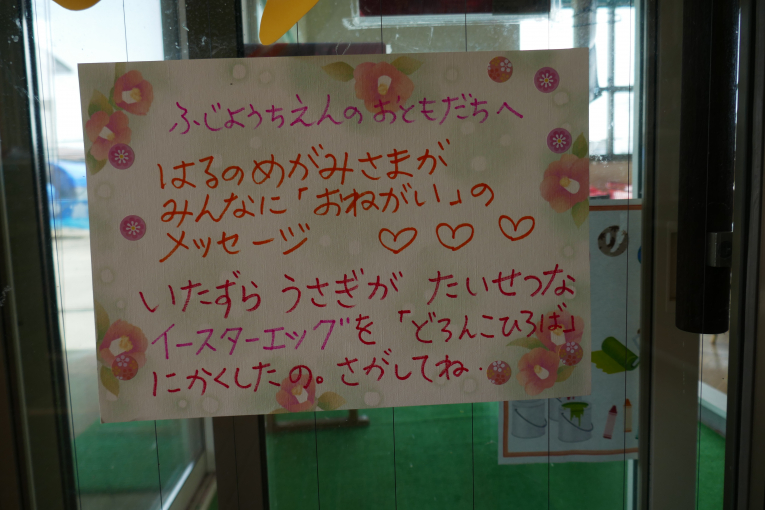 ふじようちえんのおともだちへ
はるのめがみさまが
みんなに「おねがい」の
メッセージ ♡ ♡ ♡
いたずら うさぎが たいせつな
イースターエッグを「どろんこひろば」
にかくしたの。さがしてね.